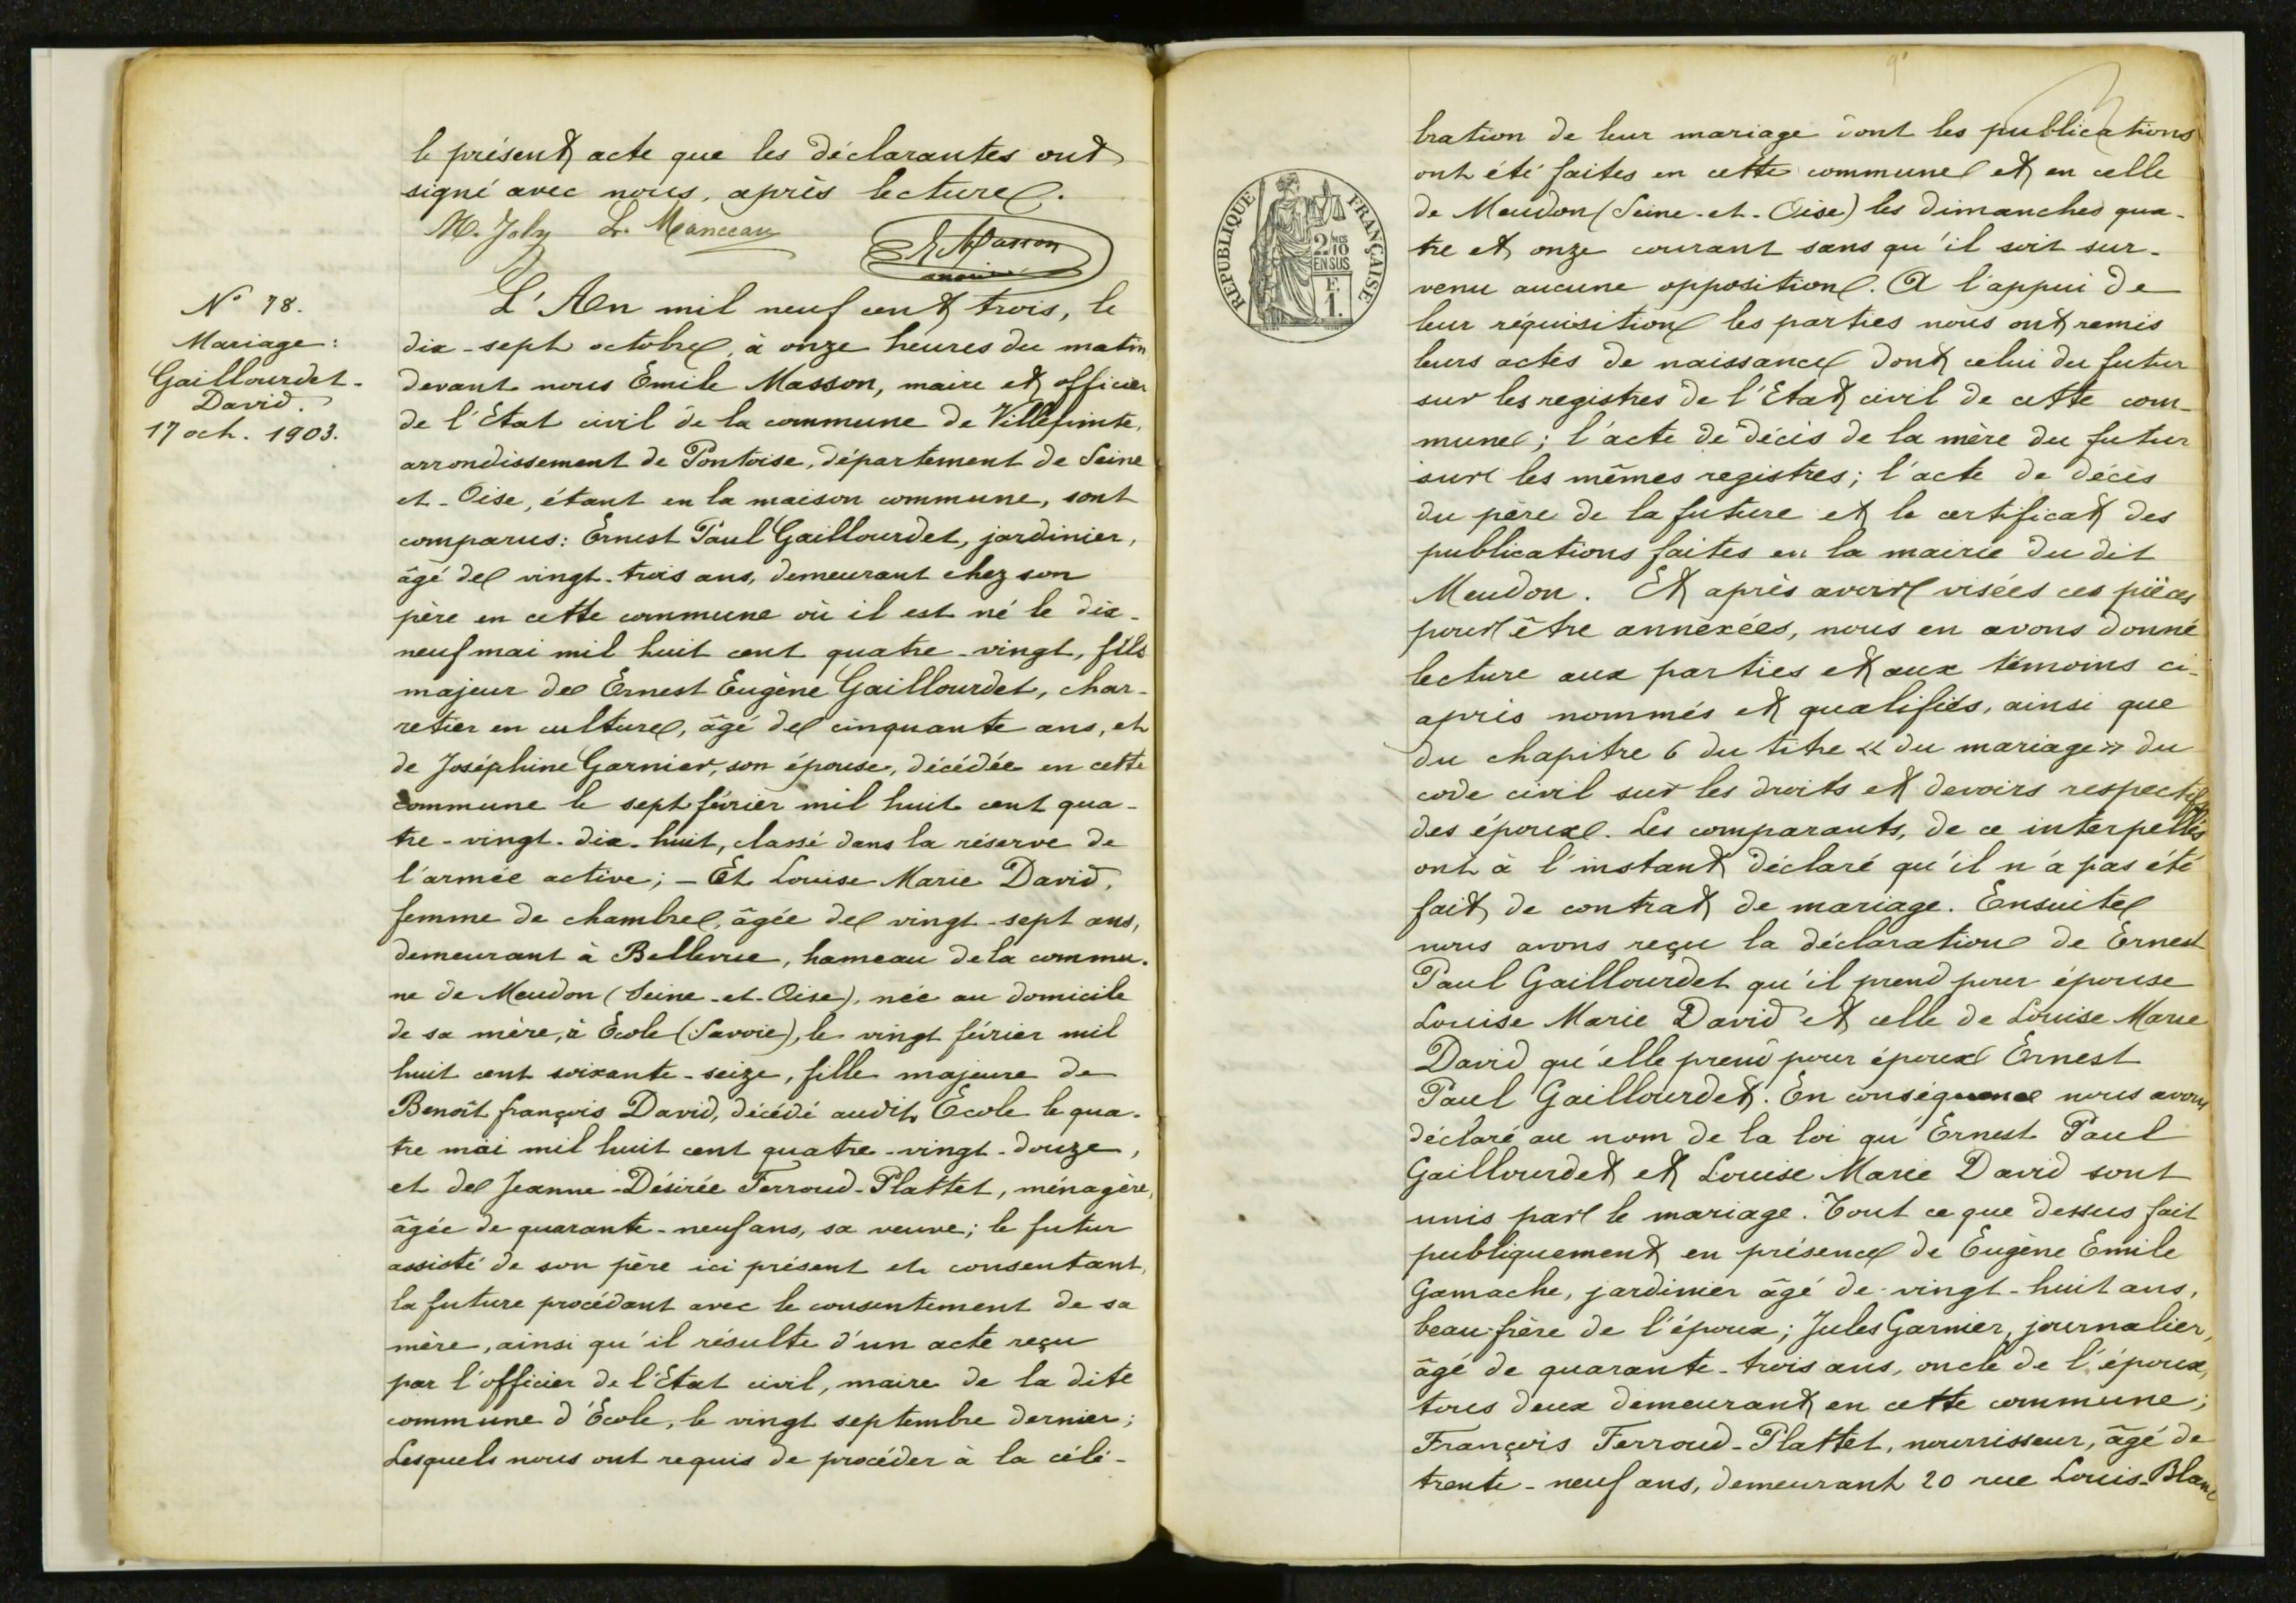 le présent acte que les déclarantes ont
signé avec nous, après lecture.
M. Joly L. Manceau
E. Masson
N° 78.
Mariage:
Gaillourdet-
David.
17 oct. 1903.
L'An mil neuf cent trois, le
dix-sept octobre, à onze heures du matin
devant nous Emile Masson, maire et officier
de l'Etat civil de la commune de Villepinte,
arrondissement de Pontoise, département de Seine
et-Oise, étant en la maison commune, sont
comparus: Ernest Paul Gaillourdet, jardinier,
âgé de vingt-trois ans, demeurant chez son
père en cette commune où il est né le dix-
neuf mai mil huit cent quatre-vingt, fils
majeur de Ernest Eugène Gaillourdet, char-
retier en culture, âgé de cinquante ans, et
de Joséphine Garnier, son épouse, décédée en cette
commune le sept février mil huit cent qua-
tre-vingt-dix-huit, classé dans la réserve de
l'armée active; - Et Louise Marie David,
femme de chambre, âgée de vingt-sept ans,
demeurant à Bellevue, hameau de la commu-
ne de Meudon (Seine-et-Oise), née au domicile
de sa mère, à Ecole (Savoie), le vingt février mil
huit cent soixante-seize, fille majeure de
Benoît françois David, décédé audit Ecole le qua-
tre mai mil huit cent quatre-vingt-douze,
et de Jeanne-Désirée Ferroud-Plattet, ménagère,
âgée de quarante-neuf ans, sa veuve; le futur
assisté de son père ici présent et consentant,
la future procédant avec le consentement de sa
mère, ainsi qu'il résulte d'un acte reçu
par l'officier de l'Etat civil, maire de la dite
commune d'Ecole, le vingt septembre dernier;
Lesquels nous ont requis de procéder à la célé-
REPUBLIQUE FRANÇAISE
2/10
EN SUS
F.
1.
bration de leur mariage dont les publications
ont été faites en cette commune et en celle
de Meudon (Seine-et-Oise) les dimanches qua-
tre et onze courant sans qu'il soit sur-
venu aucune opposition. A l'appui de
leur réquisition les parties nous ont remis
leurs actes de naissance dont celui du futur
sur les registres de l'Etat civil de cette com-
mune; l'acte de décès de la mère du futur
sur les mêmes registres; l'acte de décès
du père de la future et le certificat des
publications faites en la mairie du dit
Meudon. Et après avoir visées ces pièces
pour être annexées, nous en avons donné
lecture aux parties et aux témoins ci-
après nommés et qualifiés, ainsi que
du chapitre 6 du titre « du mariage » du
code civil sur les droits et devoirs respectifs
des époux. Les comparants, de ce interpellés
ont à l'instant déclaré qu'il n'a pas été
fait de contrat de mariage. Ensuite
nous avons reçu la déclaration de Ernest
Paul Gaillourdet qu'il prend pour épouse
Louise Marie David et celle de Louise Marie
David qu'elle prend pour époux Ernest
Paul Gaillourdet. En conséquence nous avons
déclaré au nom de la loi qu'Ernest Paul
Gaillourdet et Louise Marie David sont
unis par le mariage. Tout ce que dessus fait
publiquement en présence de Eugène Emile
Gamache, jardinier âgé de vingt-huit ans,
beau-frère de l'époux; Jules Garnier, journalier,
âgé de quarante-trois ans, oncle de l'époux,
tous deux demeurant en cette commune;
François Ferroud-Plattet, nourrisseur, âgé de
trente-neuf ans, demeurant 20 rue Louis-Blanc